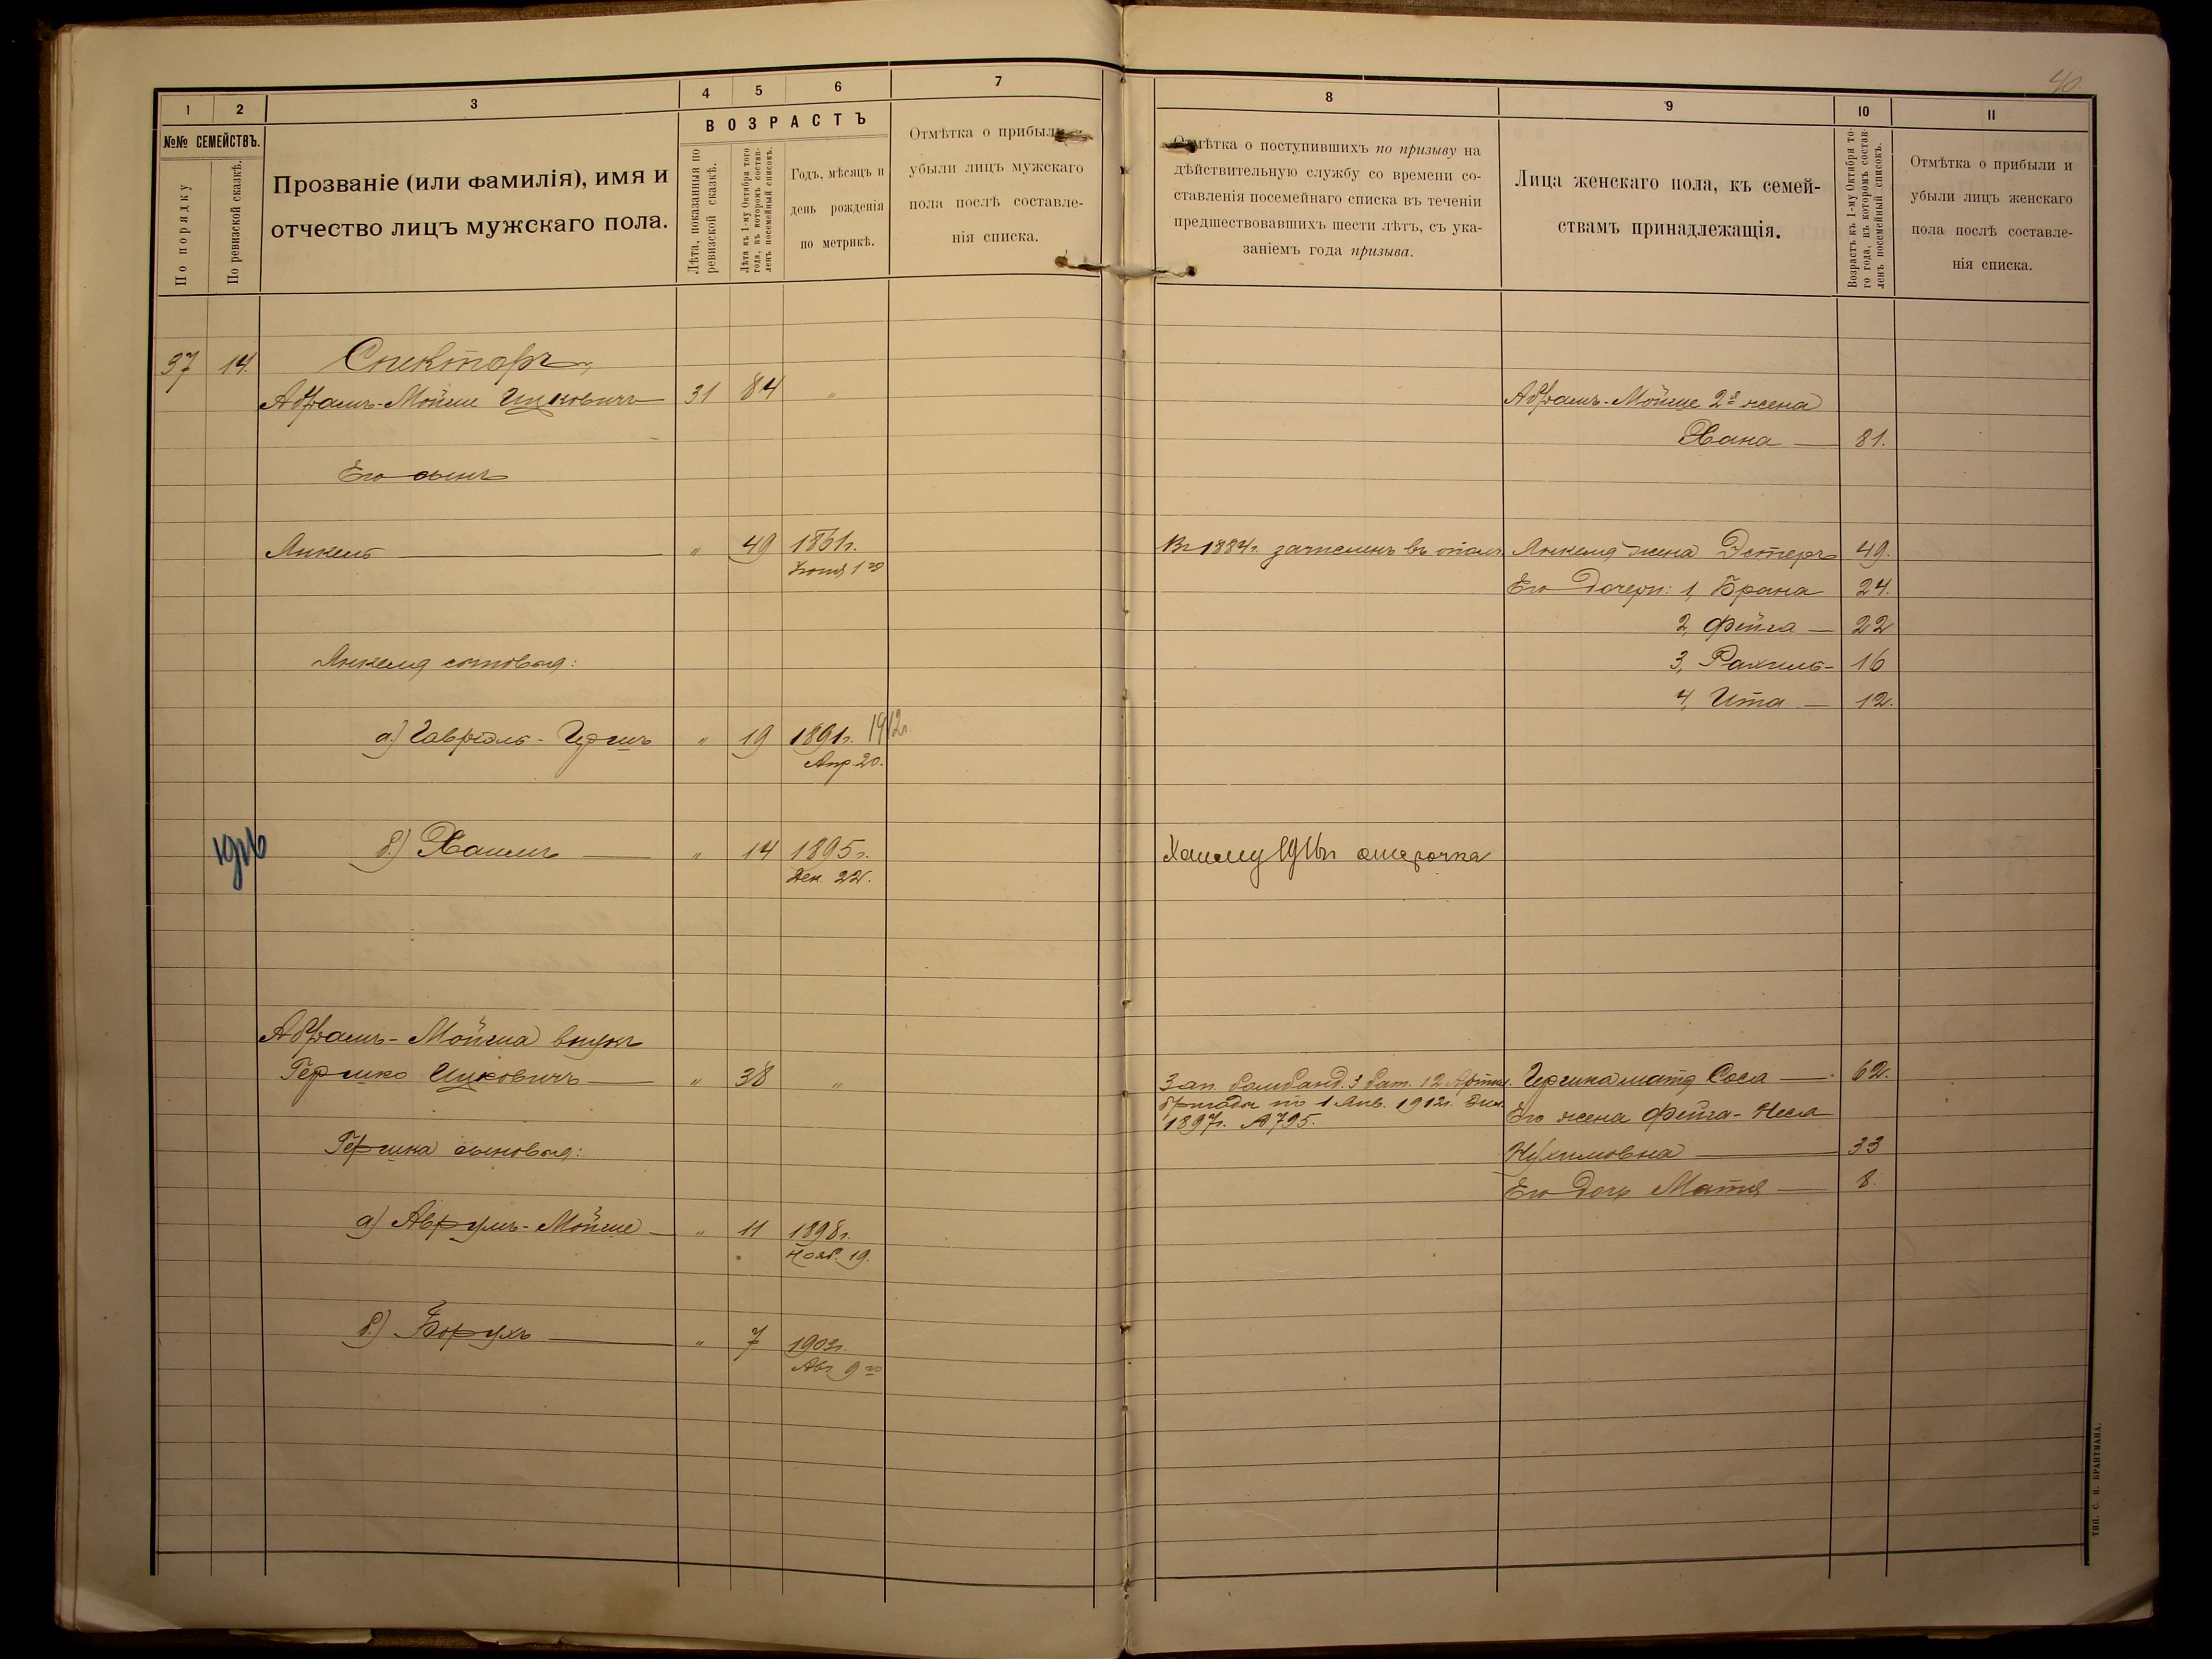 40
1
2
3
4
5
6
7
№№ СЕМЕЙСТВЪ.
По порядку
По ревизской сказкѣ.
Прозваніе (или фамилія), имя и
отчество лицъ мужскаго пола.
ВОЗРАСТЪ
Лѣта, показанныя по
ревизской сказкѣ.
Лѣта къ 1-му Октября того
года, въ которомъ состав-
ленъ посемейный списокъ.
Годъ, мѣсяцъ и
день рожденія
по метрикѣ.
Отмѣтка о прибыли
убыли лицъ мужскаго
пола послѣ составле-
нія списка.
37 14. Спекторъ,
Абрамъ-Мойше Ицковичъ 31 84 "
Его сынъ
Янкель " 49 1861г.
Іюня 1го
Янкеля сыновья:
а) Гавріэль-Гершъ " 19 1891г. 1912г.
Апр. 20.
1916 б.) Хаимъ " 14 1895г.
Дек. 22.
Абрамъ-Мойша внукъ
Гершко Ицковичъ " 38 "
Гершка сыновья:
а) Аврумъ-Мойше " 11 1898г.
Нояб. 19.
б.) Борухъ " 7 1903г.
Авг. 9го
8
9
10
11
Отмѣтка о поступившихъ по призыву на
дѣйствительную службу со времени со-
ставленія посемейнаго списка въ теченіи
предшествовавшихъ шести лѣтъ, съ ука-
заніемъ года призыва.
Лица женскаго пола, къ семей-
ствамъ принадлежащія.
Возрастъ къ 1-му Октября то-
го года, въ которомъ состав-
ленъ посемейный списокъ.
Отмѣтка о прибыли и
убыли лицъ женскаго
пола послѣ составле-
нія списка.
Абрамъ-Мойше 2я жена
Хана 81.
Въ 1884г. зачисленъ въ опол. Янкеля жена Эстеръ 49.
Его дочери: 1, Брана 24.
2, Фейга 22
3, Рахиль 16
4, Ита 12.
Хаиму 1916г. отсрочка
Гершка мать Соса 62.
Зап. 3 бат. 12 Артил.
бригады по 1 Янв. 1912г.
1897г. А795.
Его жена Фейга-Неся
Нухимовна 33
Его дочь Матля 8.
ТИП. С. Н. БРАНТМАНА.